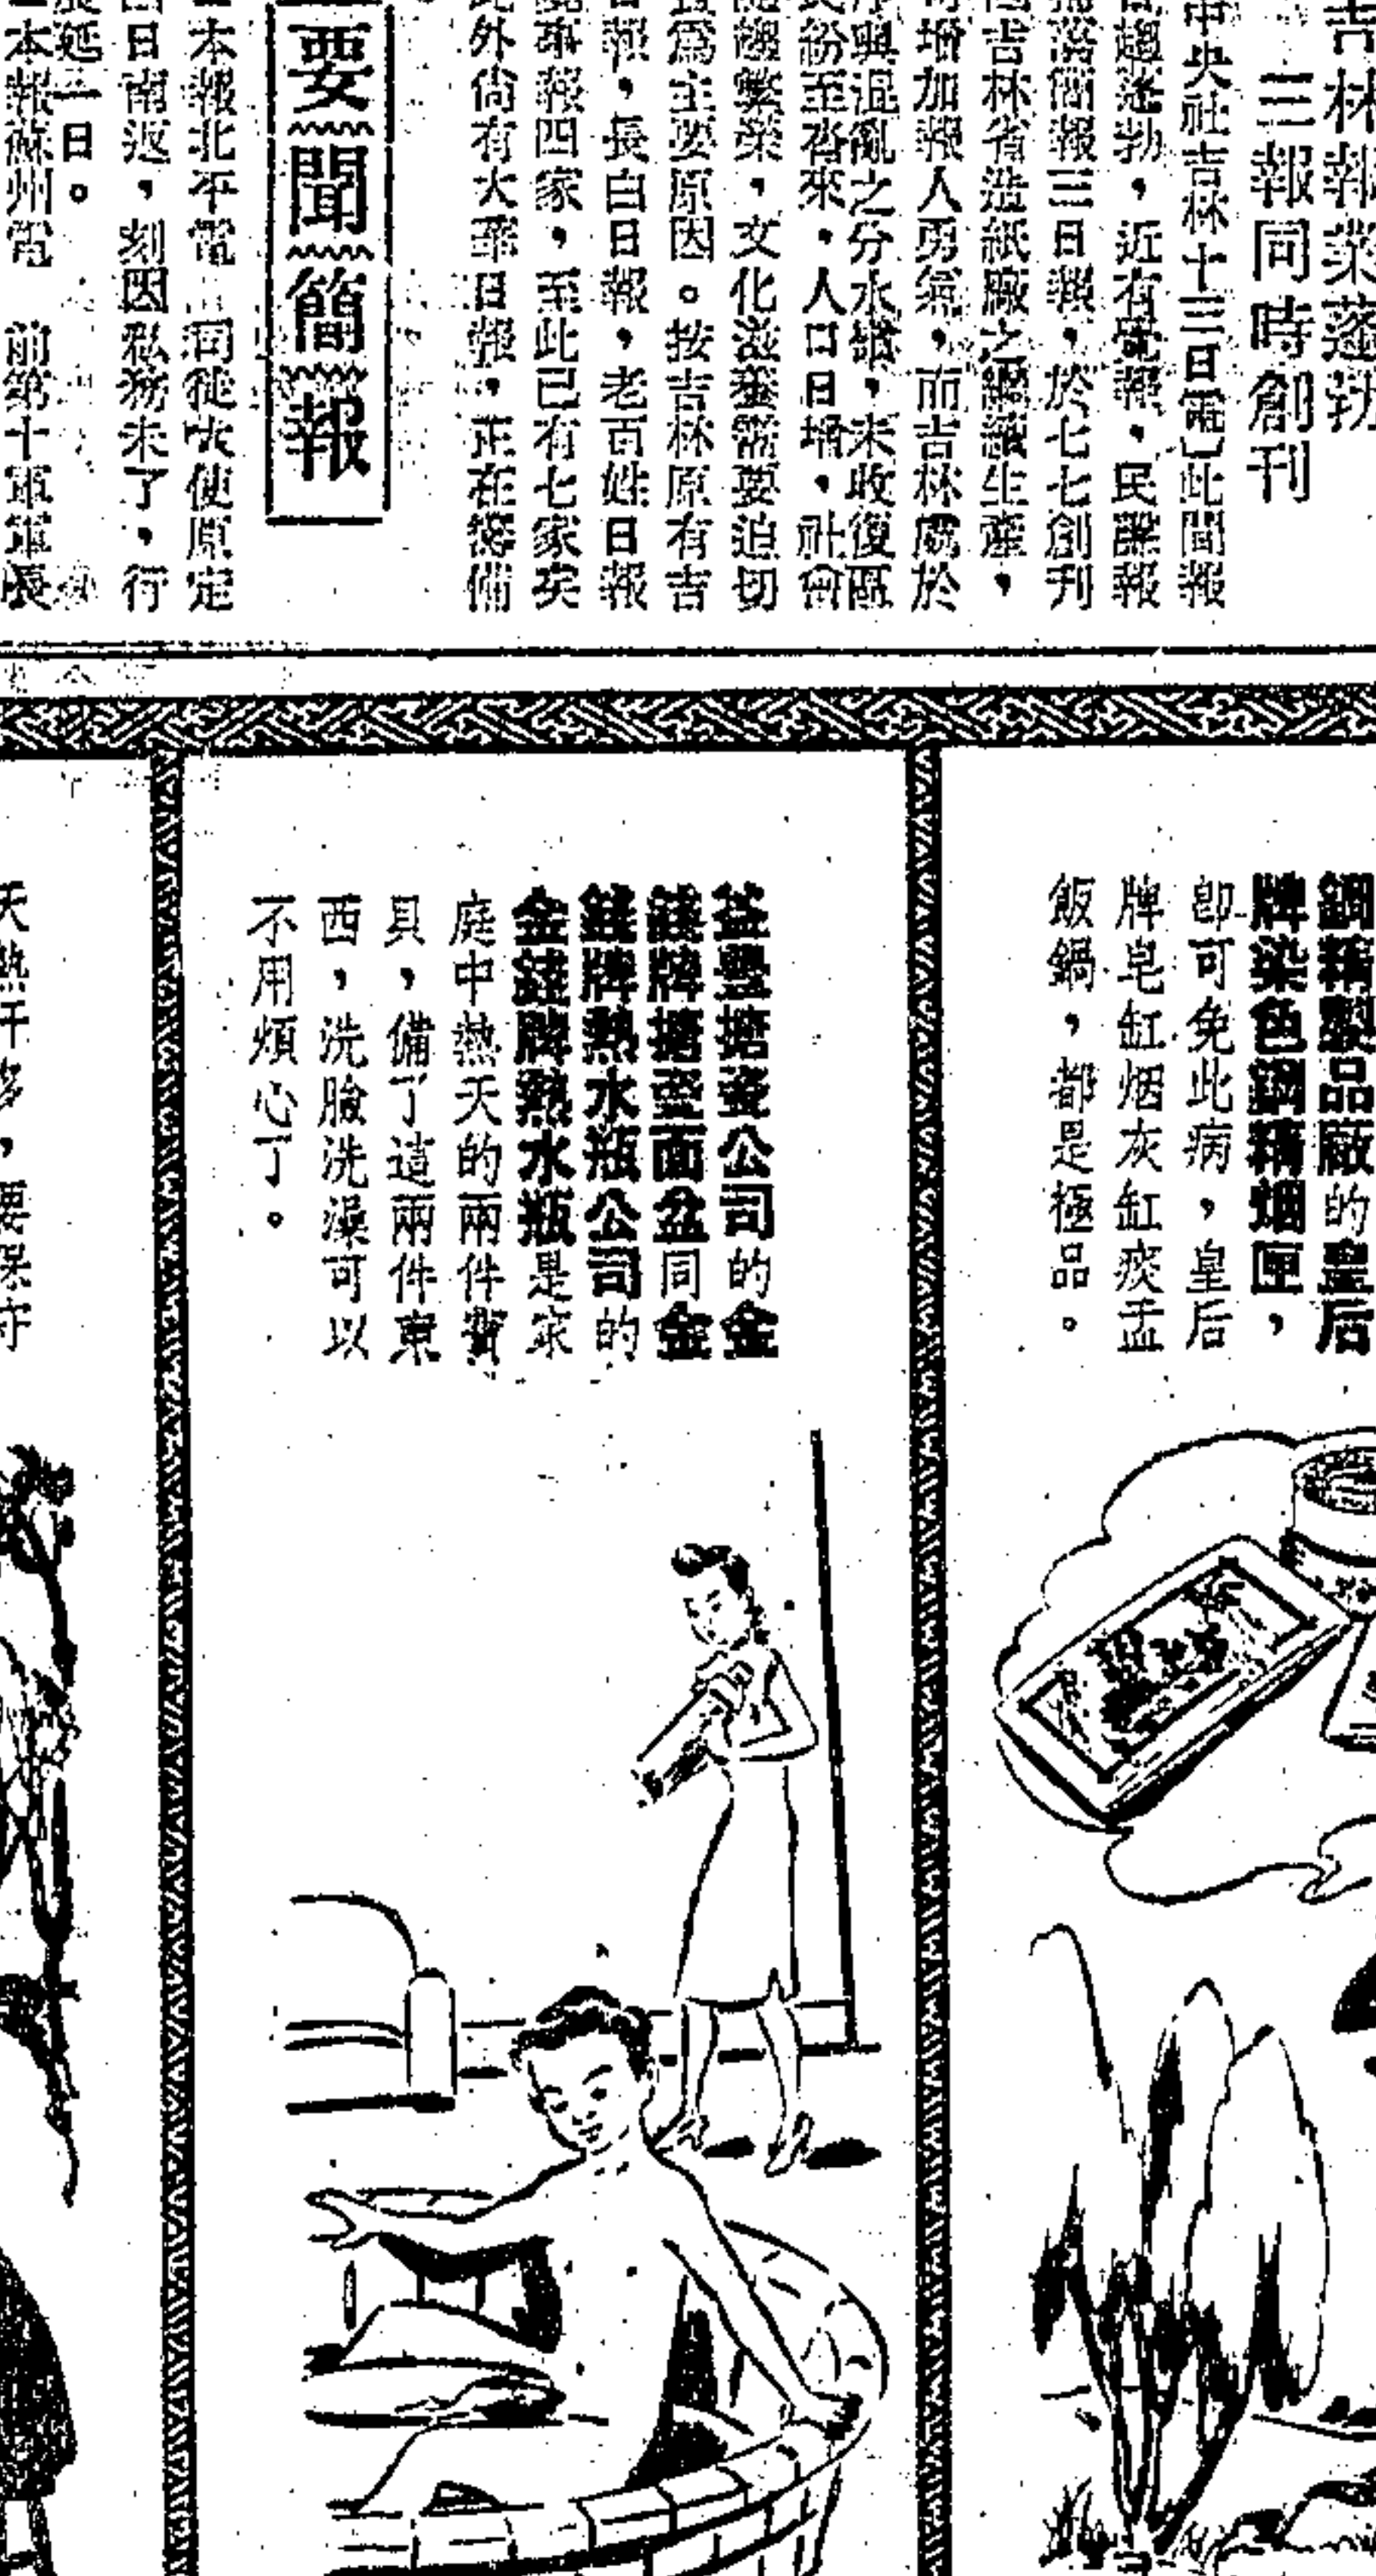 吉林報業蓬勃
三報同時創刊
中央社吉林十三日電】此間報
趨蓬勃，近有
簡報三日報，於七七創刊
吉林省造紙廠之繼續生產，
增加報人勇氣，而吉林處於
與混亂之分水嶺，未收復區
民紛至沓來，人口日增，社會
趨繁榮，文化滋養需要迫切
為主要原因。按吉林原有吉
報，長白日報，老百姓日報
華報四家，至此已有七家矣
此外尚有大華日報，正在籌備
要聞簡報
本報北平電 司徒大使原定
日南返，刻因私務未了，行
延一日。
本報蘇州電 前第十軍軍長
鋼精製品廠的皇后
牌染色鋼精烟匣，
即可免此病，皇后
牌皂缸烟灰缸痰盂
飯鍋，都是極品。
益豐搪瓷公司的金
錢牌搪瓷面盆同金
錢牌熱水瓶公司的
金錢牌熱水瓶是家
庭中熱天的兩件寶
貝，備了這兩件東
西，洗臉洗澡可以
不用煩心了。
天熱汗多，要保守